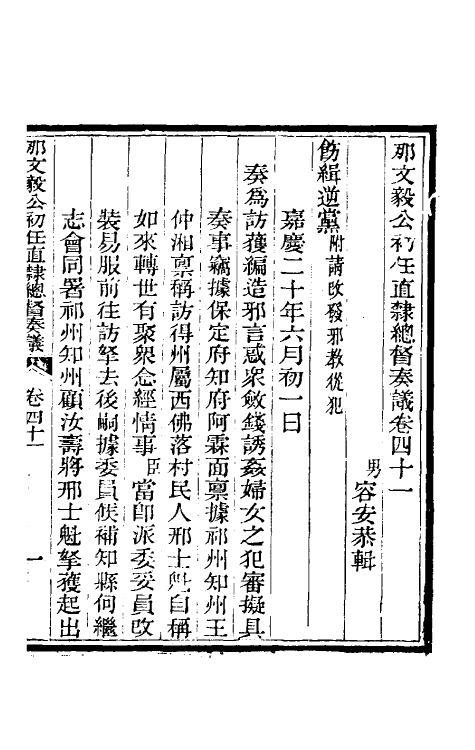 那文毅公初任直隸總督奏議卷四十一
男容安恭輯
飭緝逆黨附請改發邪教從犯
嘉慶二十年六月初一日
奏為訪獲編造邪言惑眾斂錢誘姦婦女之犯審擬具
奏事竊據保定府知府阿霖面稟據祁州知州王
仲湘稟稱訪得州屬西佛落村民人邢士魁自稱
如來轉世有聚衆念經情事臣當即派委妥員改
裝易服前往訪拏去後嗣據委員候補知縣何繼
志會同署祁州知州顧汝壽將邢士魁拏獲起出
那文毅公初任直隸總督奏議 卷四十一 一